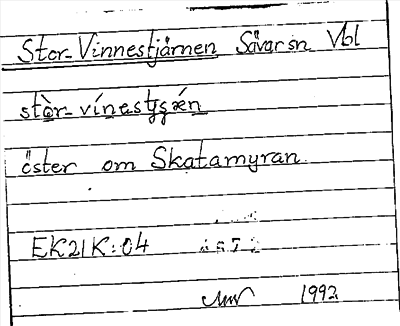 Stor-Vinnestjärnen Sävar sn Vbl
stòr-vínestjæ̀n
öster om Skatamyran
EK21K:04
1992